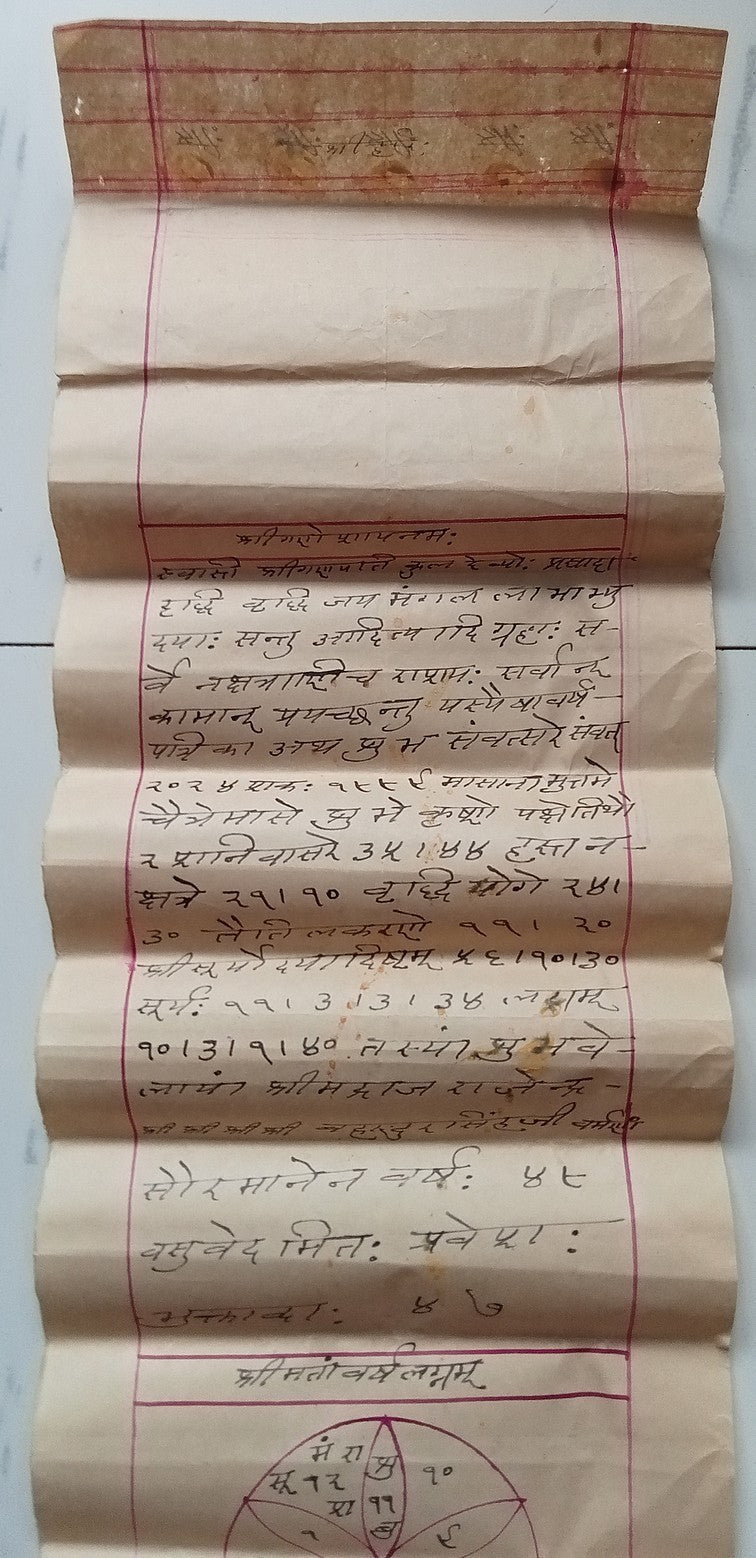 श्रीगणेशायनमः
स्वस्ति श्रीगणपति कुल देव्योः प्रसादा
वृद्धि जय मंगल लाभाभ्यु
दयाः सन्तु आदित्यादि ग्रहाः स-
र्वे नक्षत्राणि च राशयः सर्वान्
कामान् प्रयच्छन्तु यस्यैषावर्ष-
पत्रिका अथ शुभ संवत्सरे संवत्
२०२४ शाकः १८८९ मासानामुत्तमे
चैत्रेमासे शुभे कृष्णे पक्षेतिथौ
२ शनिवासरे ३५।४४ हस्ता न-
क्षत्रे २१।१० वृद्धि योगे २४।
३० तैतिलकरणे ११। २०
श्रीसूर्योदयादिष्टम् ५६।१०।३०
सूर्यः ११।३।३।३४ लग्नम्
१०।३।१।४० तस्यां शुभवे-
लायां श्रीमद्राज राजेन्द्र-
श्री श्री श्री श्री बहादुरसिंहजी
सौरमानेन वर्षः ४८
वसुवेदमितः प्रवेशः
भुक्ताब्दाः ४७
श्रीमतां वर्षलग्नम्
मं रा शु १०
सू १२
श ११
१ बु ९